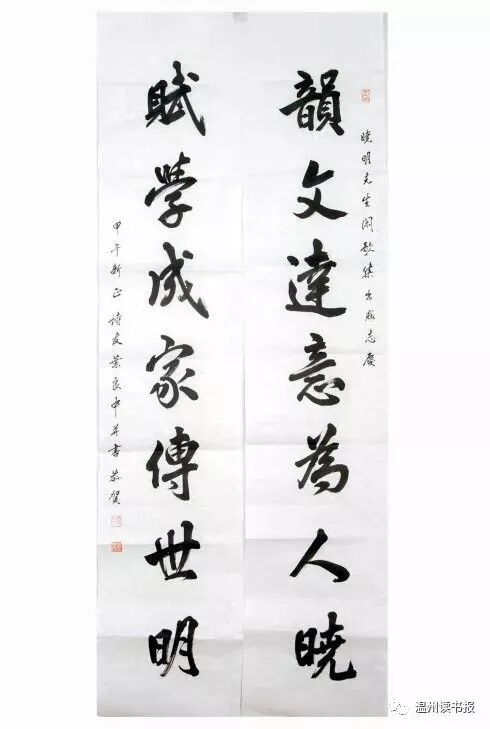 曉明先生闲歌集出版志慶
韻文達意為人曉
賦學成家傳世明
甲午新正詩友葉良中并書恭賀
温州读书报